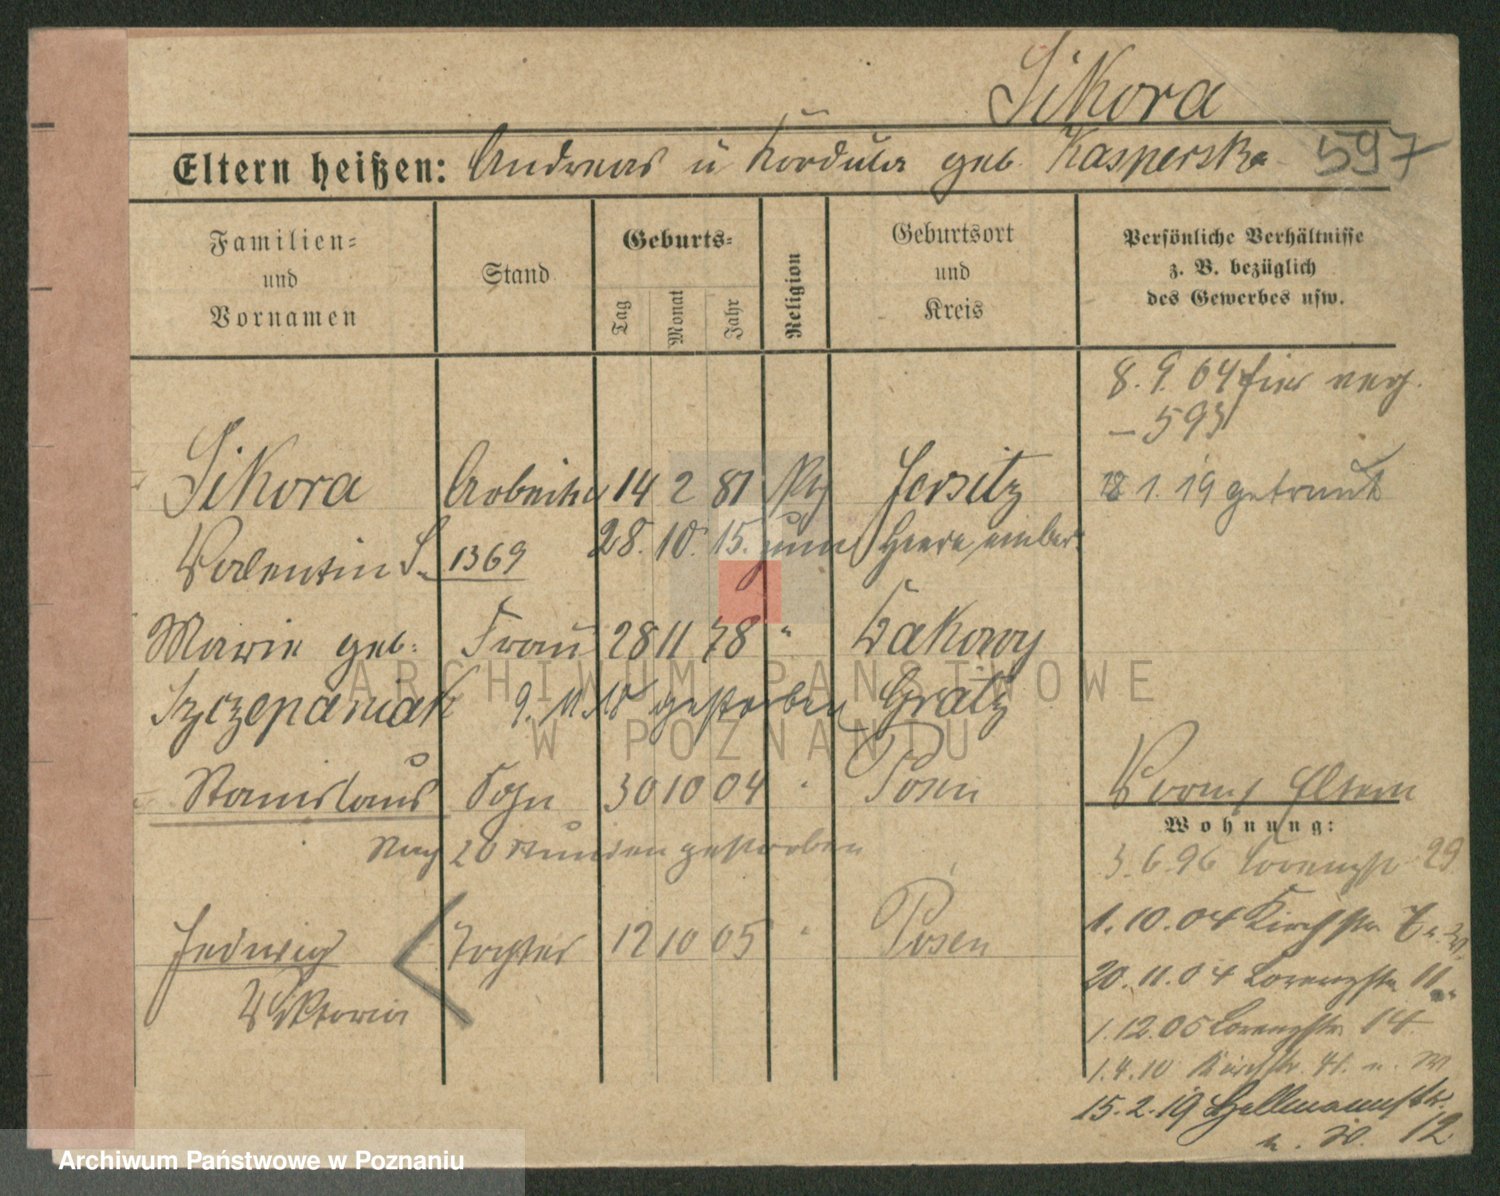 Sikora
Eltern heißen: Andreas u Kordula geb. Kasperska 597
Familien- und Vornamen
Stand
Geburts-
Tag Monat Jahr
Religion
Geburtsort und Kreis
Persönliche Verhältnisse
z. B. bezüglich
des Gewerbes usw.
8. 9. 04 hier
– 593
Sikora Arbeiter 14 2 81 Jersitz 18 1. 19 getraut
Valentin S. 1369 28. 10. 15. zum Heere einber.
Marie geb. Frau 28 11 78 " Bakowy
Szczepaniak 9. 11. 18 gestorben Grätz
Stanislaus Sohn 30 10 04 " Posen
Nach 20 Stunden gestorben
Vorm. Eltern
Wohnung:
3. 6. 96 Lorenzstr 29
Hedwig Tochter 12 10 05 " Posen
Viktoria
1. 10. 04 Kirchstr.
20. 11. 04 Lorenzstr. 11
1. 12. 05 Lorenzstr. 14
1. 4. 10 Kirchstr. 41. u. W
15. 2. 19 Hellmannstr.
u. W. 12
ARCHIWUM PAŃSTWOWE
W POZNANIU
Archiwum Państwowe w Poznaniu